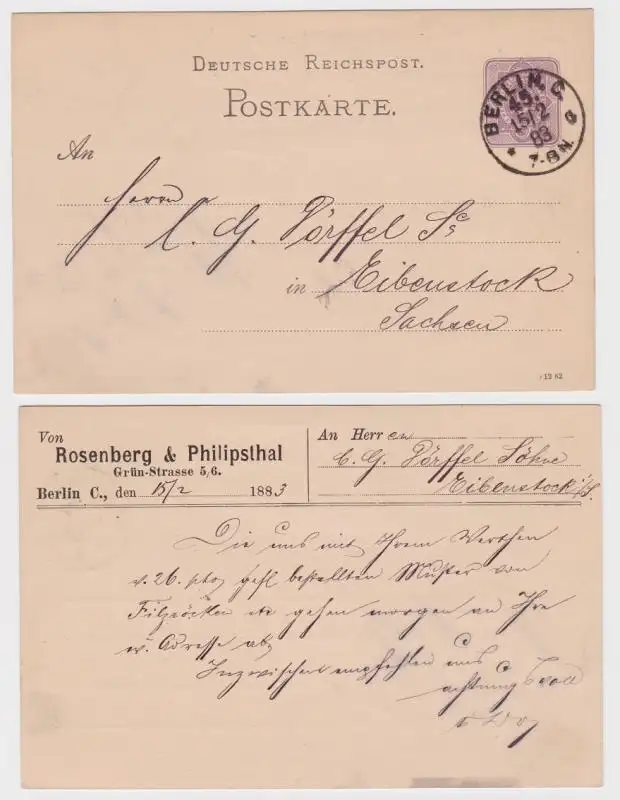 DEUTSCHE REICHSPOST.
POSTKARTE.
BERLIN. C.
45.
15/2
83
7-8 N.
a
An
Herrn
C. G. Dörffel Se
in Eibenstock
Sachsen
12 82
Von
Rosenberg & Philipsthal
Grün-Strasse 5/6.
Berlin C., den 15/2 1883
An Herren
C. G. Dörffel Söhne
Eibenstock i/S.
Die uns mit Ihrem Werthen
v. 26. gefl bestellten Muster von
Filzröcken etc gehen morgen an Ihre
w. Adresse ab,
Inzwischen empfehlen uns
achtungsvoll